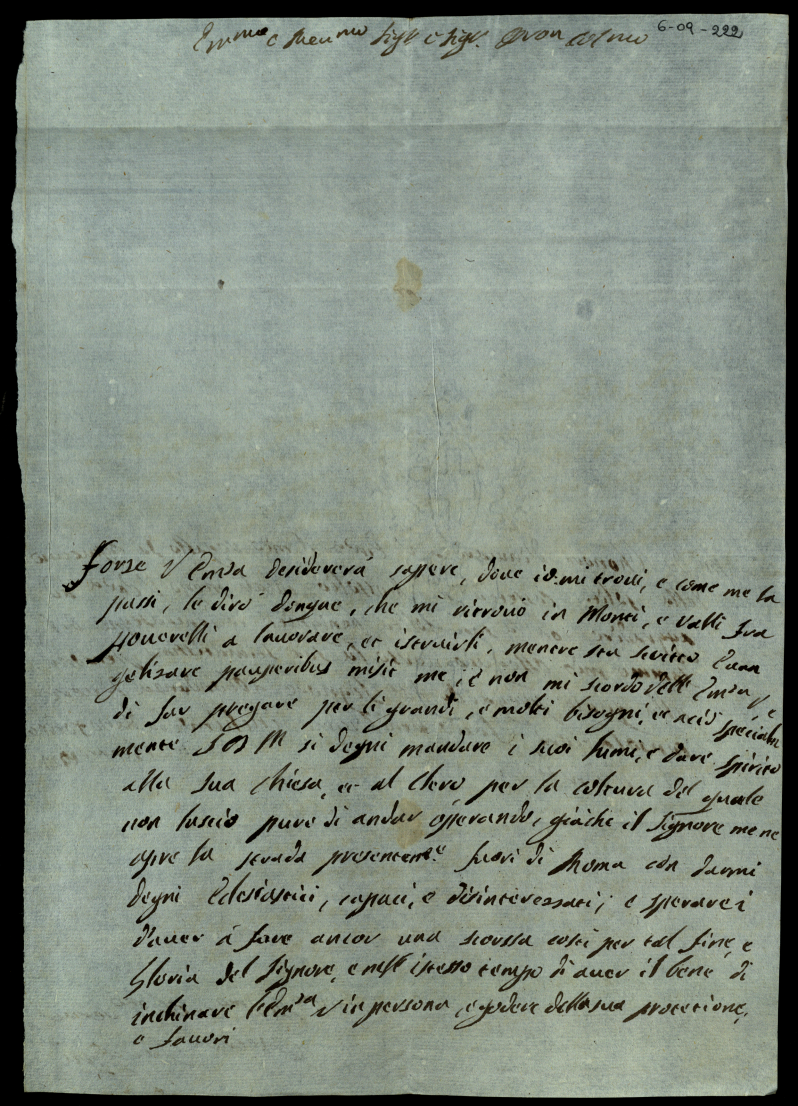 Emmo e Reumo Sigr e Sigr. Pron Colmo 6-09-222
Forse V Emza desidererà sapere, doue io mi troui, e come me la
passi, le dirò donque, che mi ritrouo in Monti, e Valli fra
Pouerelli a lauorare, et istruirli, mentre sta scritto Euan
gelizare pauperibus misit me, e non mi scordo dell Emza V e
di far pregare per li grandi, e molti bisogni, et acciò special
mente S D M si degni mandare i suoi lumi, e dare spirito
alla sua Chiesa, et al Clero, per la coltura del quale
non lascio pure di andar operando, giachè il Signore me ne
apre la strada presenteme. fuori di Roma con darmi
degni Eclesiastici, capaci, e disinteressati; e sperarei
d'auer à fare ancor una scorssa costì per tal fine, e
Gloria del Signore, e nell istesso tempo di auer il bene di
inchinare l'Emza V in persona, e godere della sua protetione,
e fauori